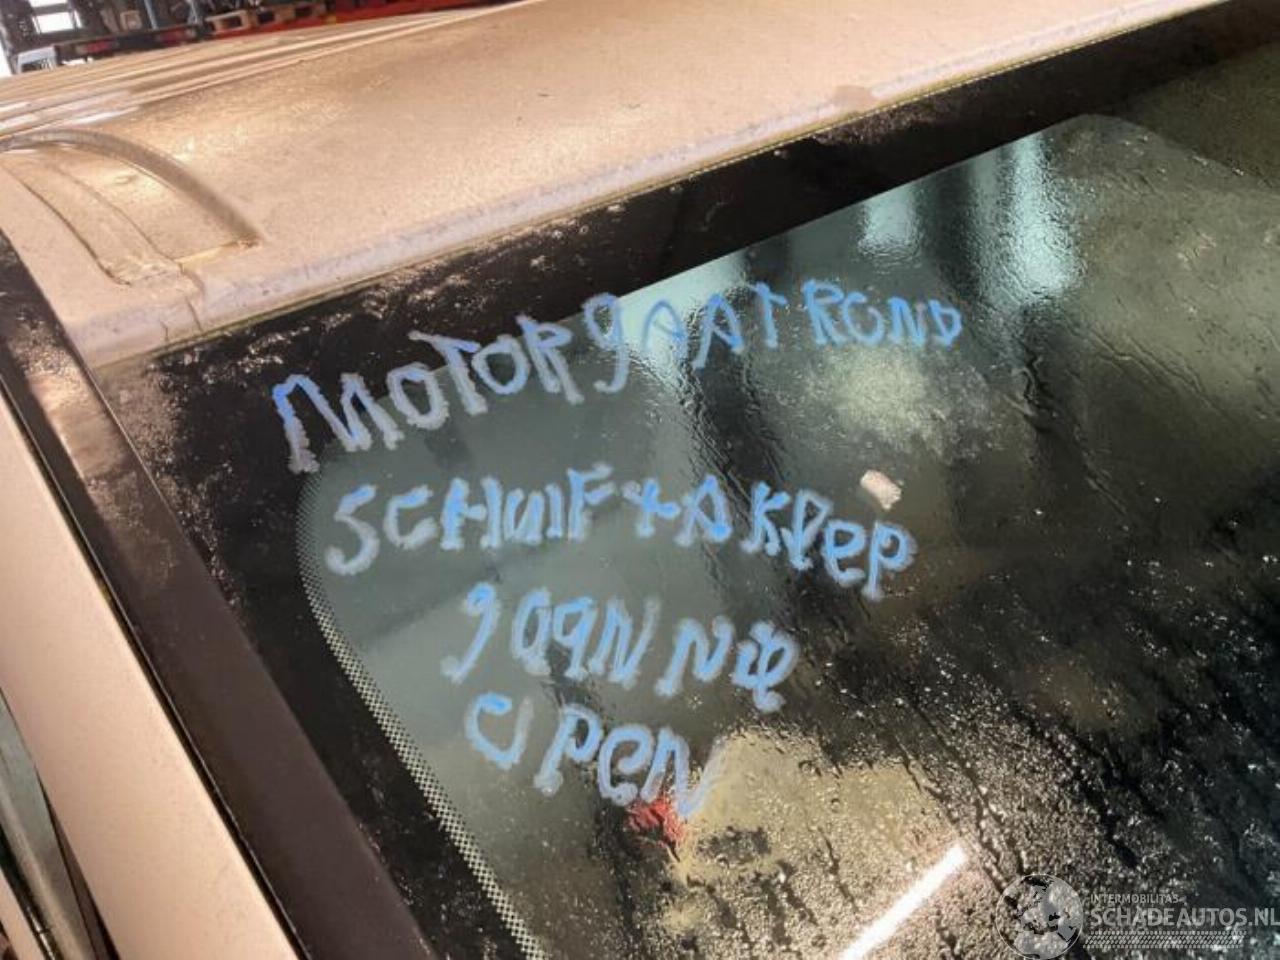 MOTOR gAAT ROND
SCHUIF + A KLEP
gaaN Nie
OPeN
INTERMOBILITAS
SCHADEAUTOS.NL